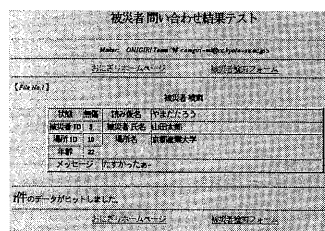 被災者問い合わせ結果テスト
Maker: ONIGIRI Team
おにぎりホームページ 被災者検索フォーム
[File No.1]
被災者 情報
状態 無傷 読み仮名 やまだたろう
被災者ID 8 被災者氏名 山田太郎
場所ID 10 場所名 京都産業大学
年齢 22
メッセージ たすかったぁ~
1件のデータがヒットしました。
おにぎりホームページ 被災者検索フォーム